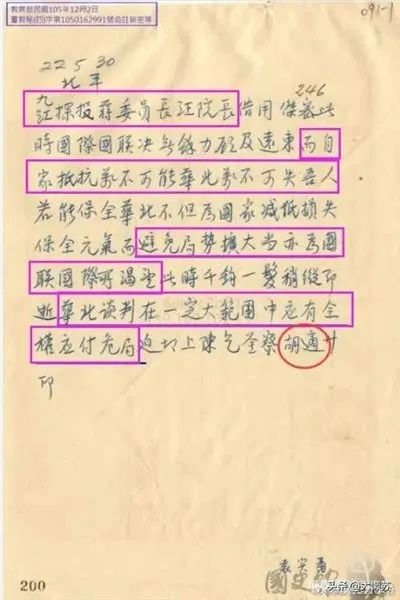 教育部民國105年12月2日
臺教秘(四)字第1050162991號函註銷密等
091-1
22 5 30
北平
246
九江探投蔣委員長汪院長借用傑 此
時國際國联决無餘力顧及遠東而自
家抵抗萬不可能華北萬不可失吾人
若能保全華北不但為國家減低損失
保全元氣而避免局勢擴大当亦為國
联國際所渴望此時千鈞一髮稍縱即
逝華北談判在一定大範圍中應有全
權應付危局迫切上陳乞垂察胡適卅
印
200
國史館
头条